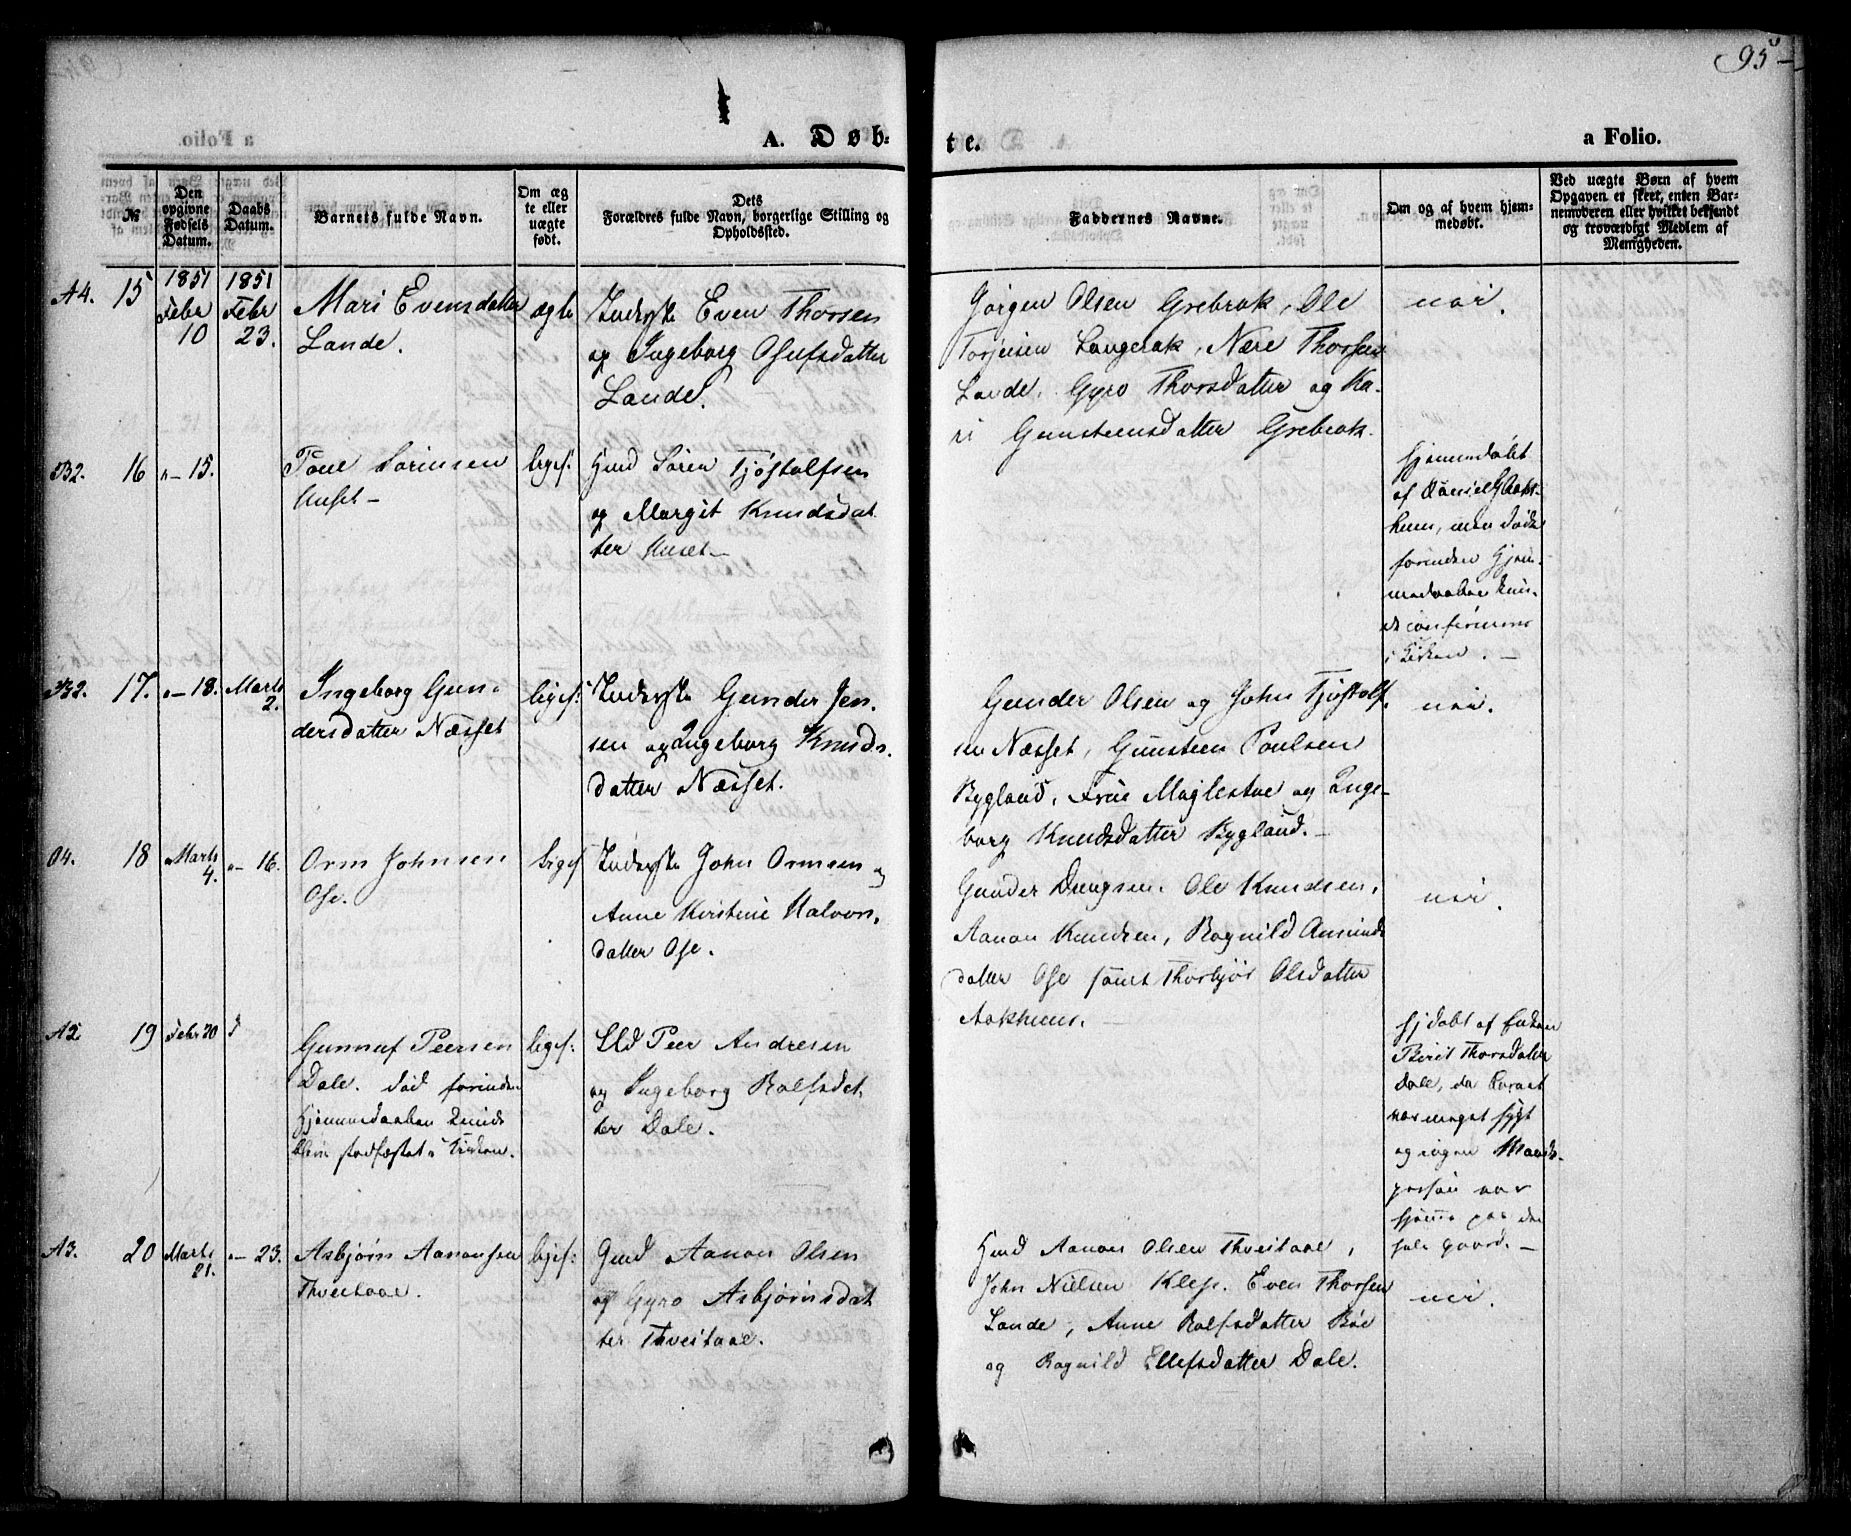 95
A. Døb-
te.
a Folio.
№
Den opgivne Fødsels Datum.
Daabs Datum.
Barnets fulde Navn.
Om ægte eller uægte født.
Dets Forældres fulde Navn, borgerlige Stilling og Opholdssted.
Faddernes Navne.
Om og af hvem hjemmedøbt.
Ved uægte Børn af hvem Opgaven er skeet, enten Barnemoderen eller hvilket bekjendt og troværdigt Medlem af Menigheden.
A4. 15
1851 Febr 10
1851 Febr 23.
Mari Evensdatter
Lande.
ægte
Inderste Even Thorsen
og Ingeborg Osufsdatter
Lande.
Jørgen Olsen Grebrok, Ole
Torjusen Langerak, Nære Thorsen
Lande, Gyro Thorsdatter og Ka-
ri Gunsteensdatter Grebrok.
nei.
B2. 16
"– 15.
Poul Sørensen
Huset –
ligef:
Gmd Søren Tjøstolfsen
og Margit Knudsdat
ter Huset –
Hjemmedøbt
af Daniel
men døde
forinden Hjem-
medaaben kun-
de confereres
i Kirken. –
B2. 17.
"– 18.
Marts 2.
Ingeborg Gun-
dersdatter Næsset
ligef:
Inderste Gunder Jen-
sen og Ingeborg Knuds-
datter Næsset.
Gunder Olsen og John Tjøstolf-
sen Næsset, Gunsteen Poulsen
Bygland, Frue Moglestue og Inge-
borg Knudsdatter Bygland. –
nei.
O4. 18
Marts 4.
"– 16.
Orm Johnsen
Ose.
ligef
Inderste John Ormsen og
Anne Kirstine Halvors-
datter Ose.
Gunder Ole Knudsen,
Aanon Knudsen, Ragnild Amunds
datter Ose samt Thorbjør Olsdatter
Aakhuus. –
nei.
A2. 19
Febr 20
Gunnuf Peersen
Dale. død forinden
Hjemmedaaben kunde
blive stadfæstet i Kirken.
ligef:
Peer Andresen
og Ingeborg Rolfsdat
ter Dale.
Hjdøbt af Enken
Birit Thorsdatter
Dale, da Barnet
var meget sygt
og ingen Mands-
person var
hjemme paa den
hele gaard. –
A3. 20
Marts 21.
"– 23.
Asbjørn Aanonsen
Thveitaae.
ligef:
Gmd Aanon Olsen
og Gyro Asbjørnsdat
ter Thveitaae.
Gmd Aanon Olsen Thveitaae,
John Nielsen Klep. Even Thorsen
Lande, Anne Rolfsdatter Bøe
og Ragnild Ellefsdatter Dale.
nei.